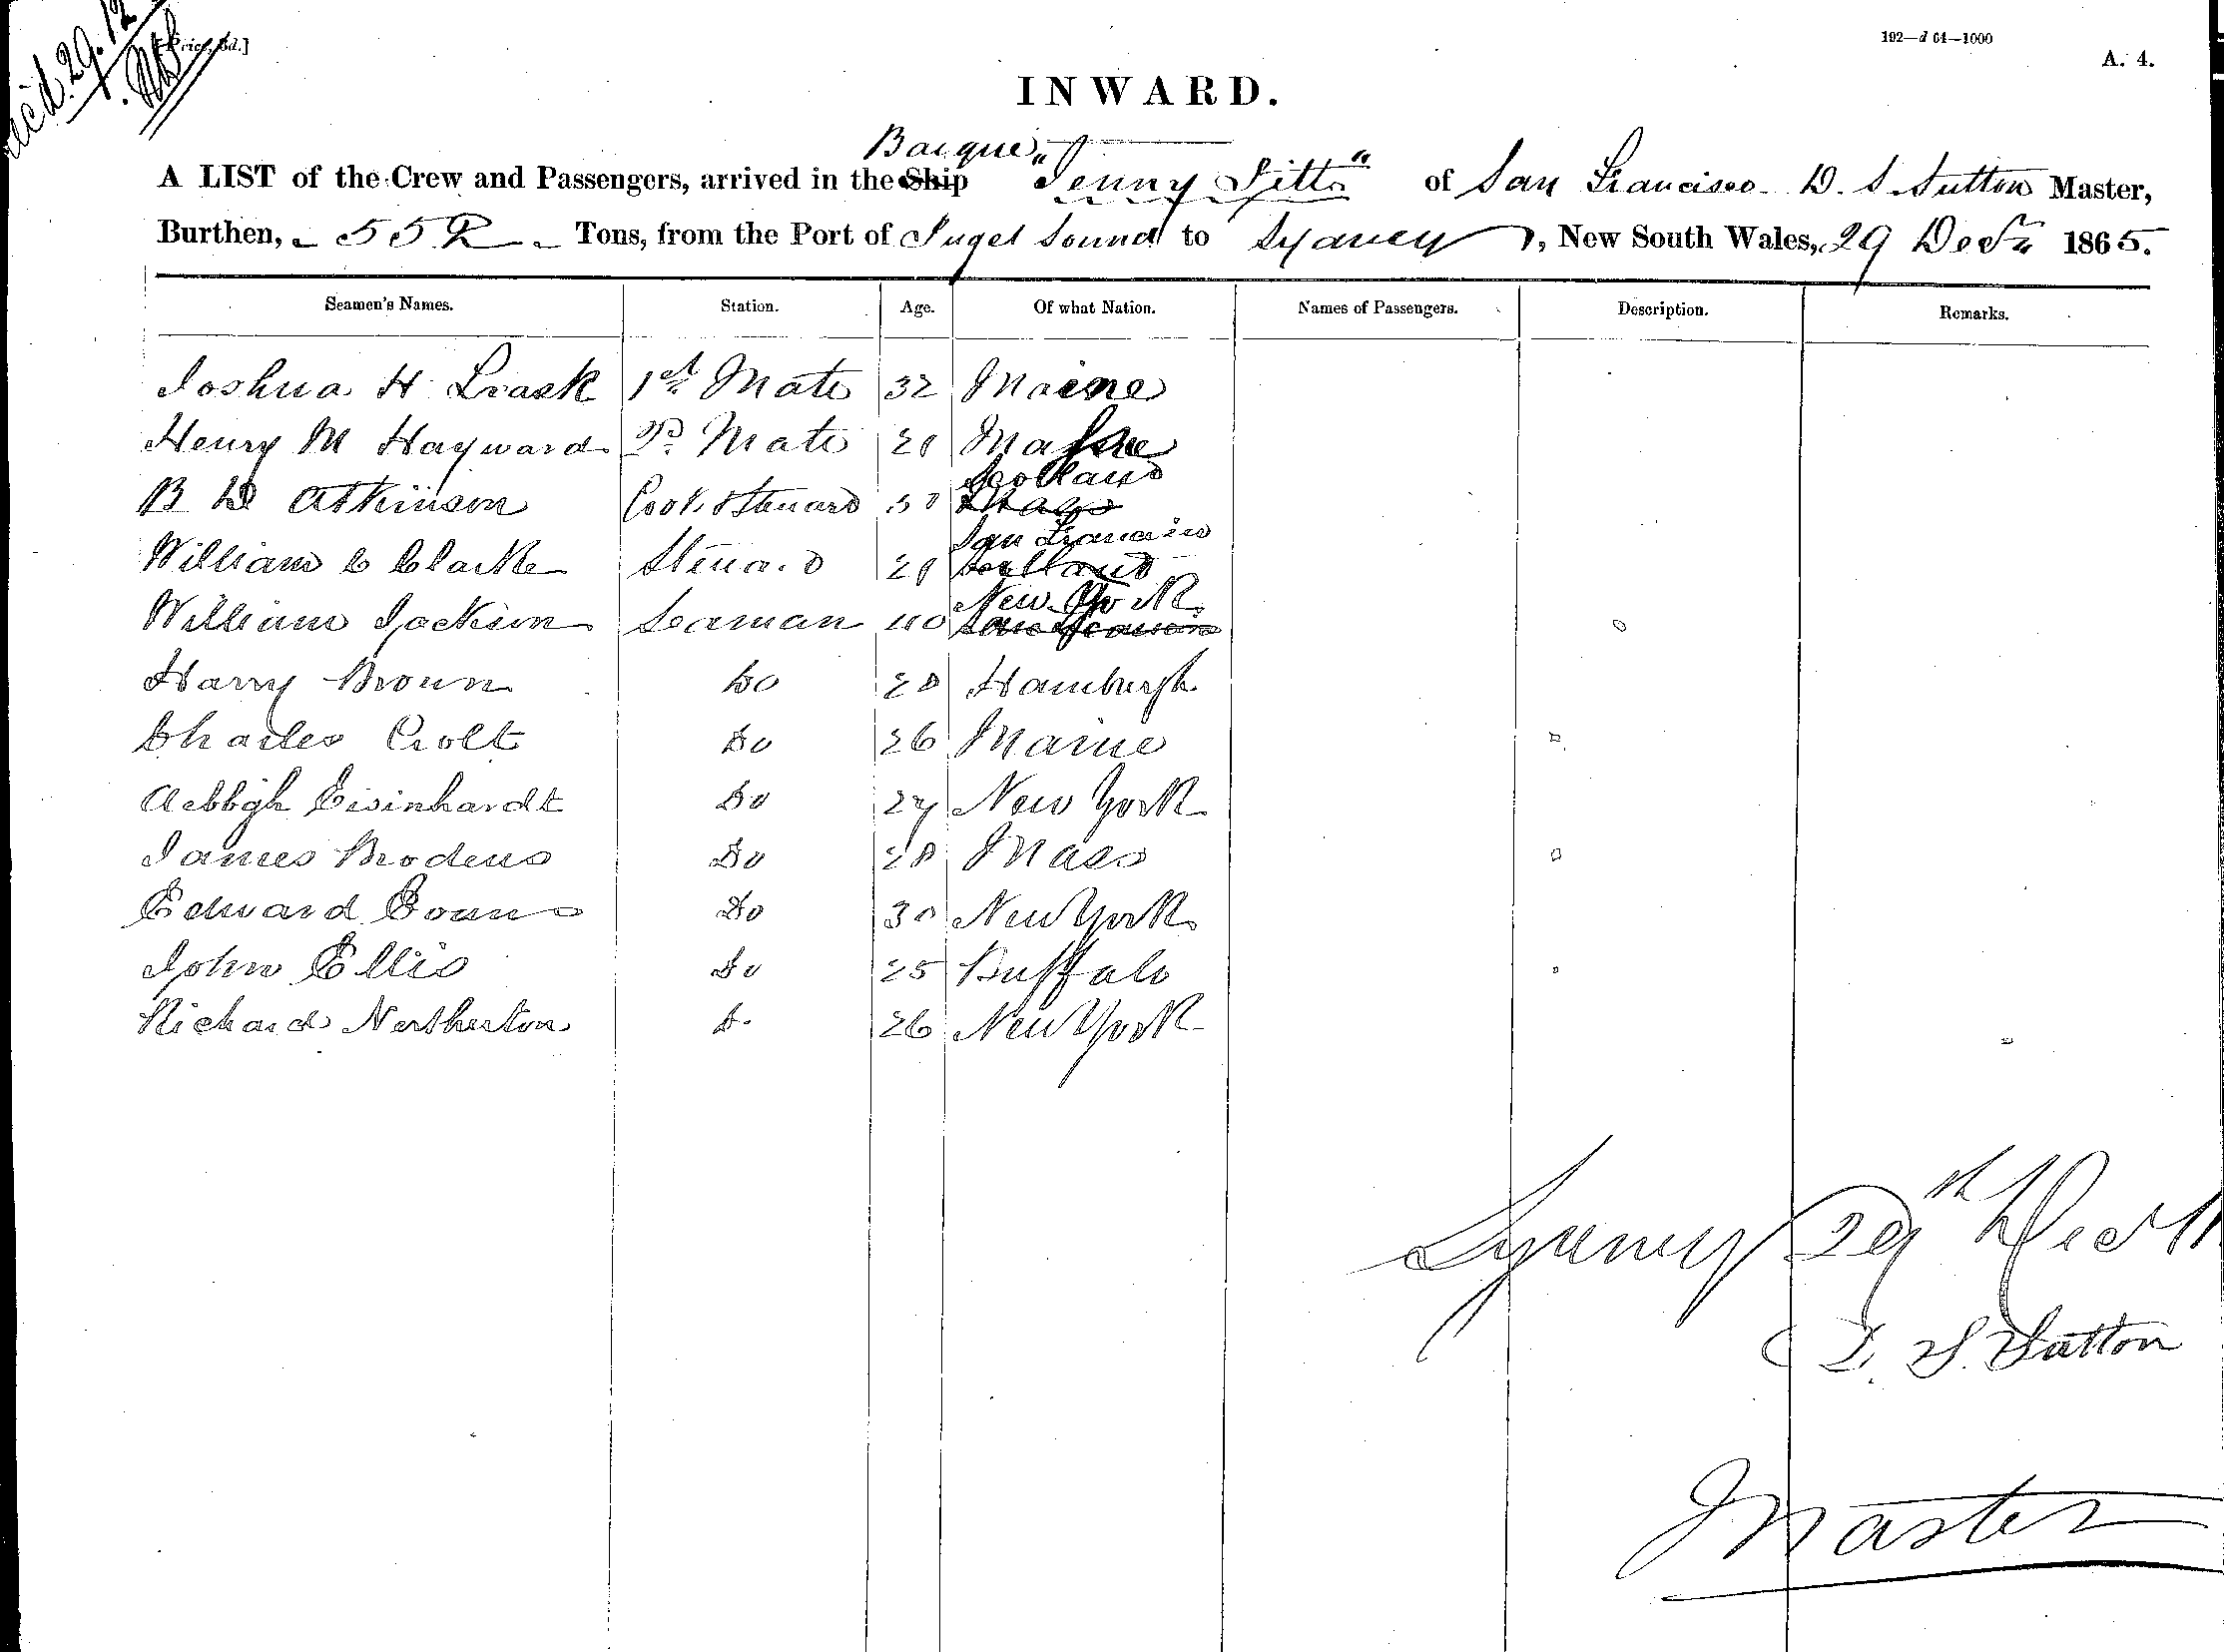 [Price, 3d.]
192—d 64—1000
A. 4.
29.12
INWARD.
Barque
A LIST of the Crew and Passengers, arrived in the Ship "Jenny Pitts" of San Francisco D. S. Sutton Master,
Burthen, 552 Tons, from the Port of Puget Sound to Sydney, New South Wales, 29 Decr 1865.
Seamen's Names. Station. Age. Of what Nation. Names of Passengers. Description. Remarks.
Joshua H 1st Mate 32 Maine
Henry M Hayward 2d Mate Maine
Scotland
B Atkinson Cook & Steward
San Francisco
William C Clarke Steward Scotland
New York
William Jackson Seaman 40 San Francisco
Harry Brown Do 28 Hamburgh
Charles Do 26 Maine
Eisinhardt Do 27 New York
James Do 28 Mass
Edward Evans Do 30 New York
John Ellis Do 25 Buffalo
Richard Do 26 New York
Sydney 29th Decr
D. S. Sutton
Master